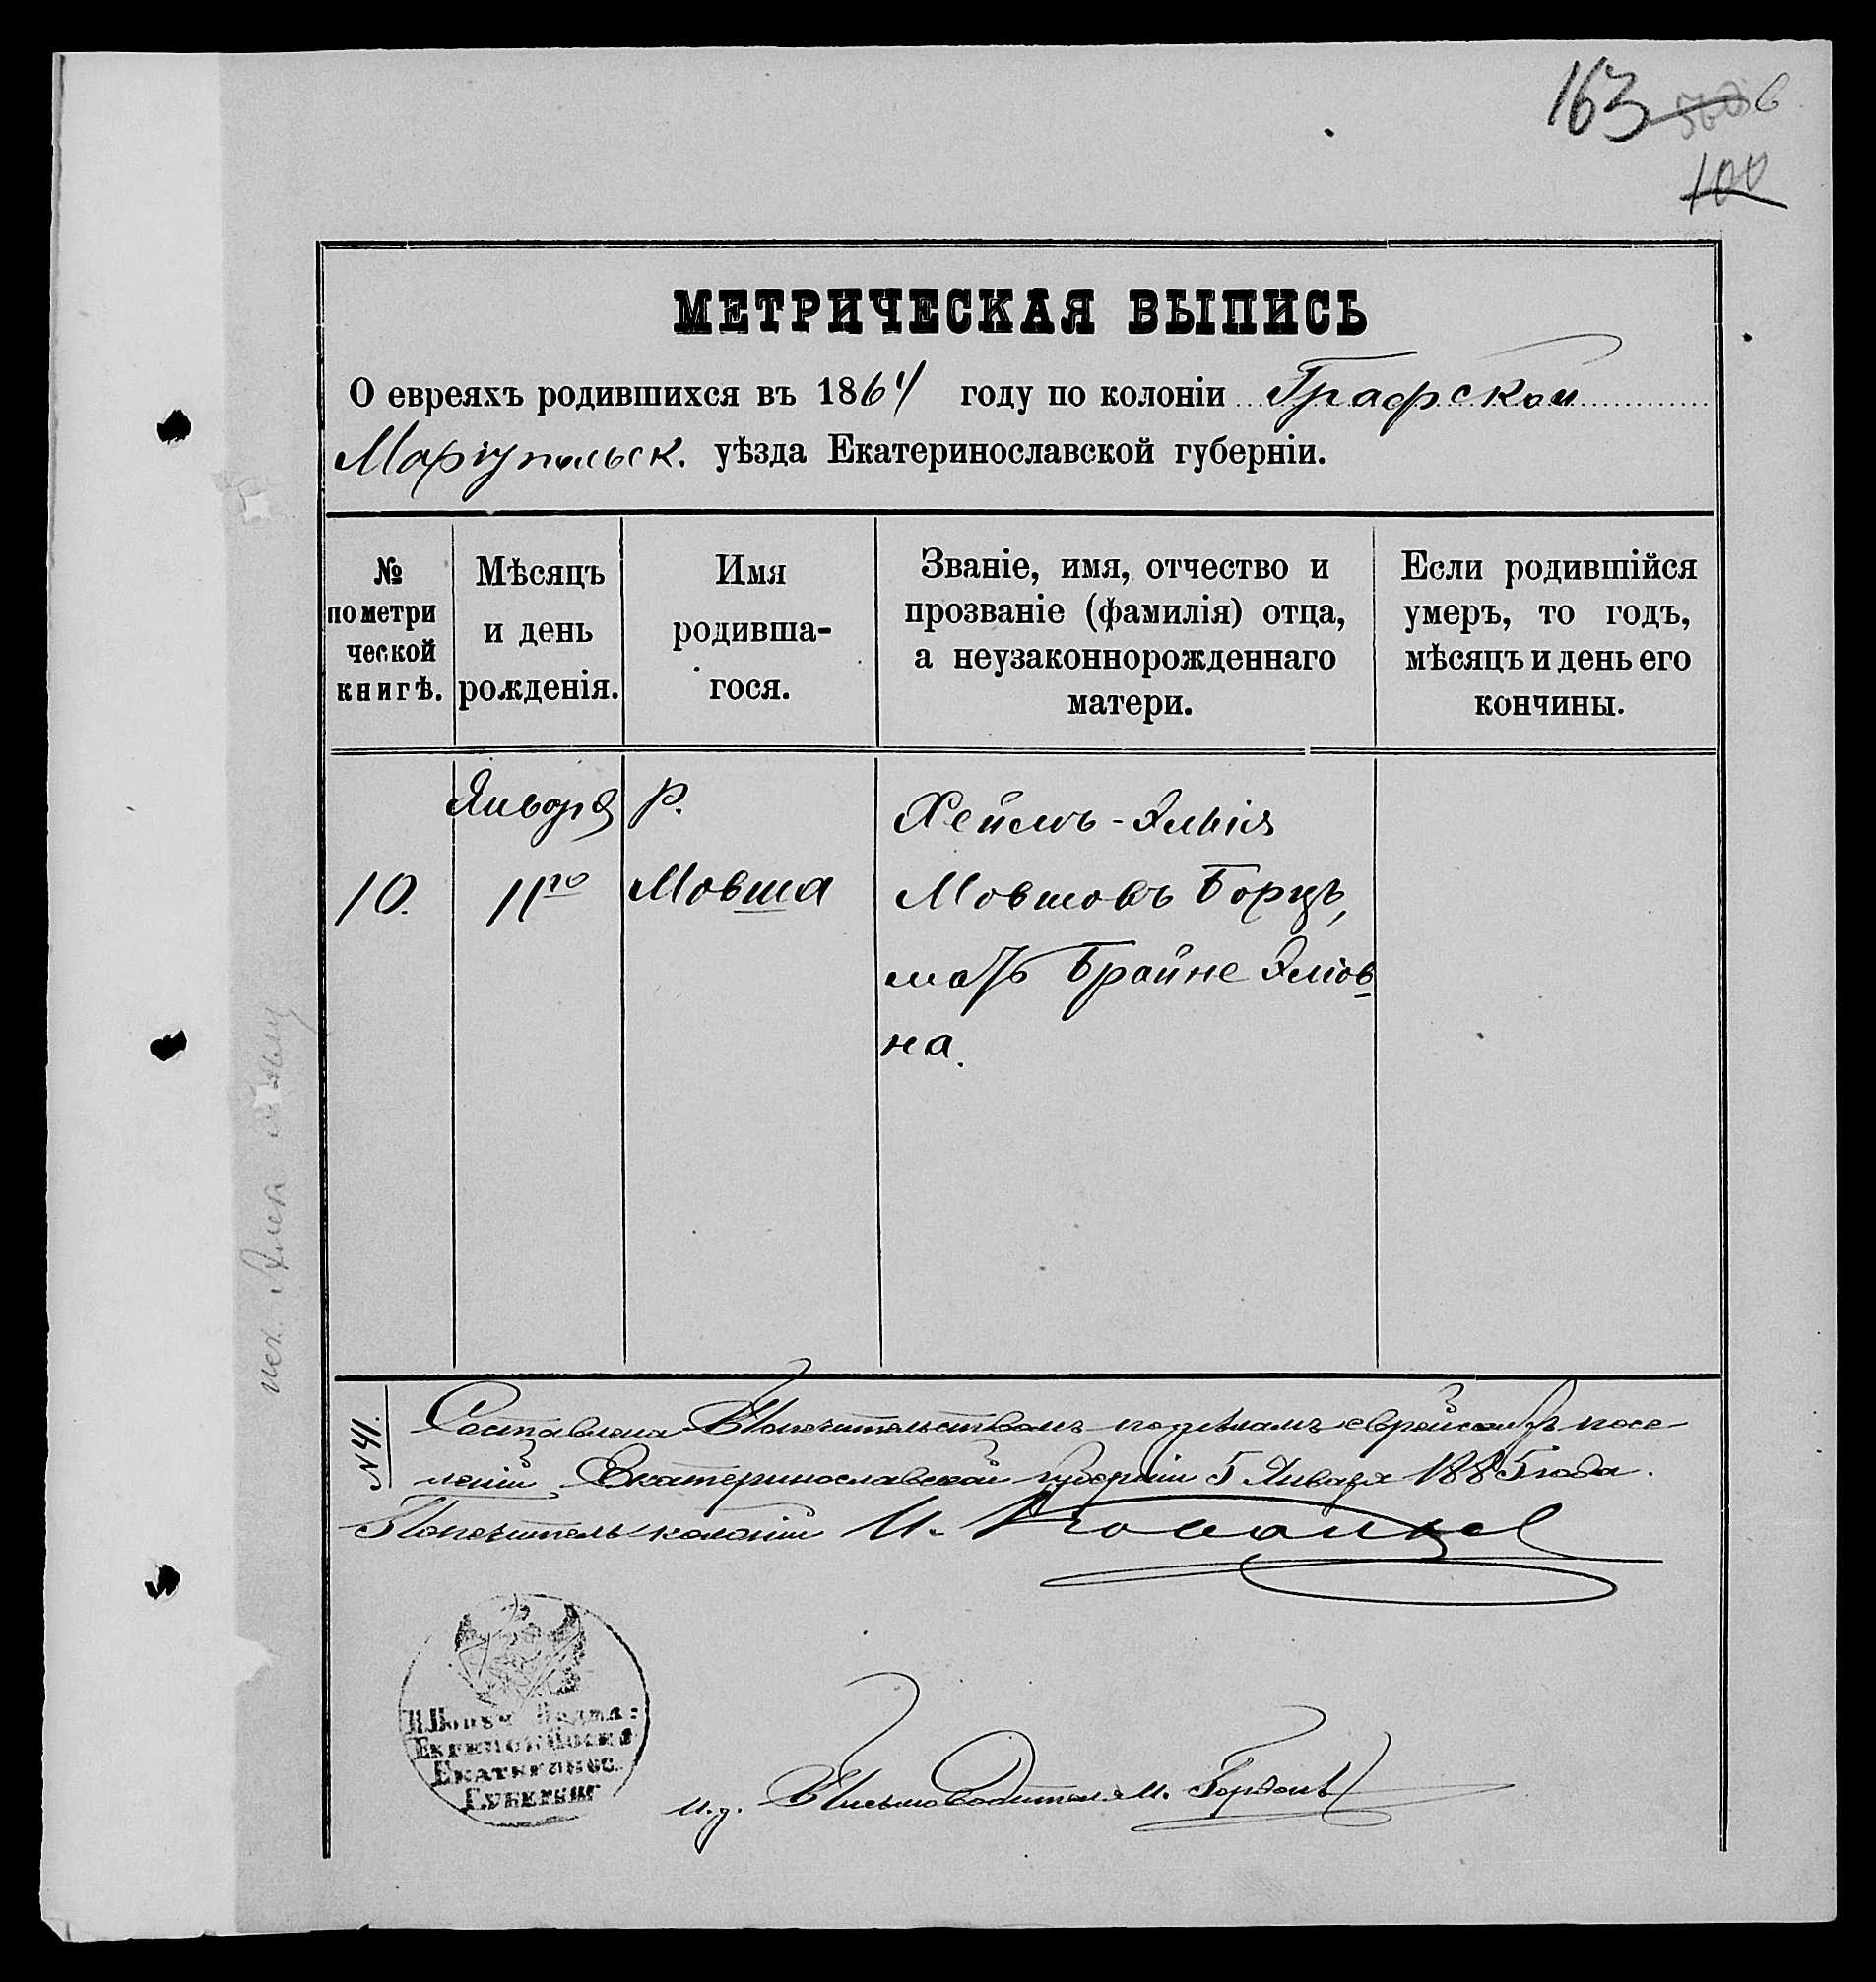 163
100
МЕТРИЧЕСКАЯ ВЫПИСЬ
О евреяхъ родившихся въ 1864 году по колоніи Графской
Маріупольск. уѣзда Екатеринославской губерніи.
№ по метри ческой книгѣ.
Мѣсяцъ и день рожденія.
Имя родивша- гося.
Званіе, имя, отчество и прозваніе (фамилія) отца, а неузаконнорожденнаго матери.
Если родившійся умеръ, то годъ, мѣсяцъ и день его кончины.
Января Р. Хеймъ-Эльія
10. 11го Мовша Мовшовъ Борцъ,
мать Брайне Эліов
на.
№ 41.
Составлена Попечительствомъ по дѣламъ еврейскихъ посе
леній Екатеринославской губерніи 5 Января 1885 года.
Попечитель колоній И.
Екатеринос.
Губерніи
И.д. Письмоводителя М. Гордонъ